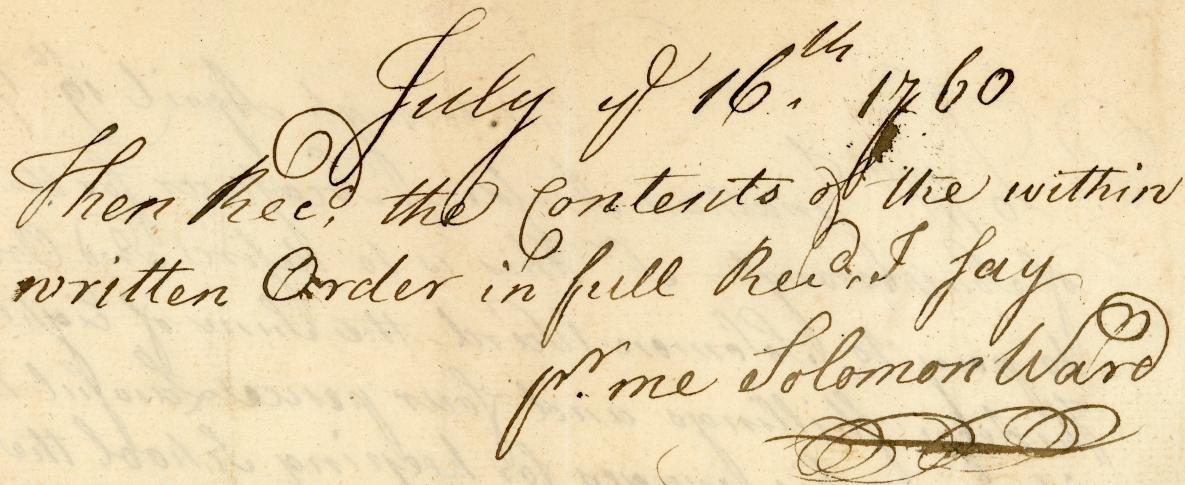 July ye 16th. 1760
Then Recd. the Contents of the within
written Order in full Recd. I say
pr. me Solomon Ward